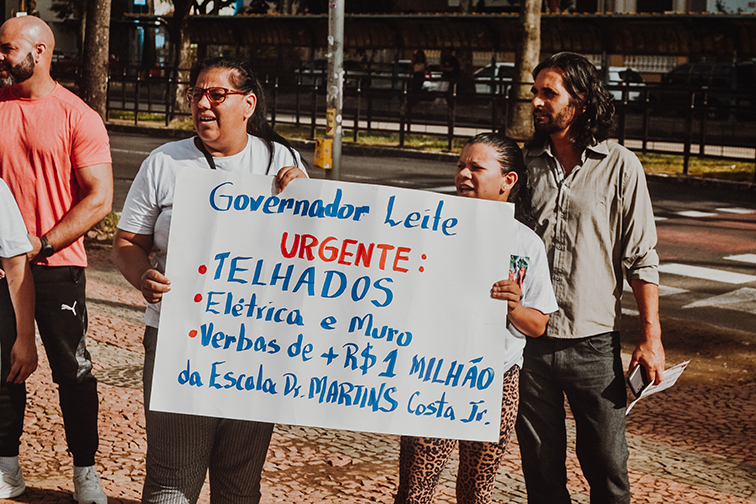 Governador Leite
URGENTE:
• TELHADOS
• Elétrica e Muro
• Verbas de + R$ 1 MILHÃO
da Escola Dr. MARTINS Costa Jr.